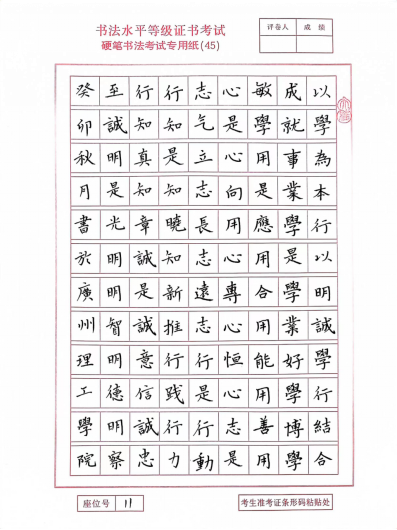 书法水平等级证书考试
硬笔书法考试专用纸(45)
评卷人 成绩
以學為本行以明誠學行結合
成就事業學是學業好學博學
敏學用是應用合用能用善用
心是心向用心專心恒心志是
志气立志長志遠志行是行動
行知是知曉知新推行行践行力
行知真知章誠是誠意信誠忠
至誠明是光明明智明德明察
癸卯秋月書於廣州理工學院
座位号 11
考生准考证条形码粘贴处